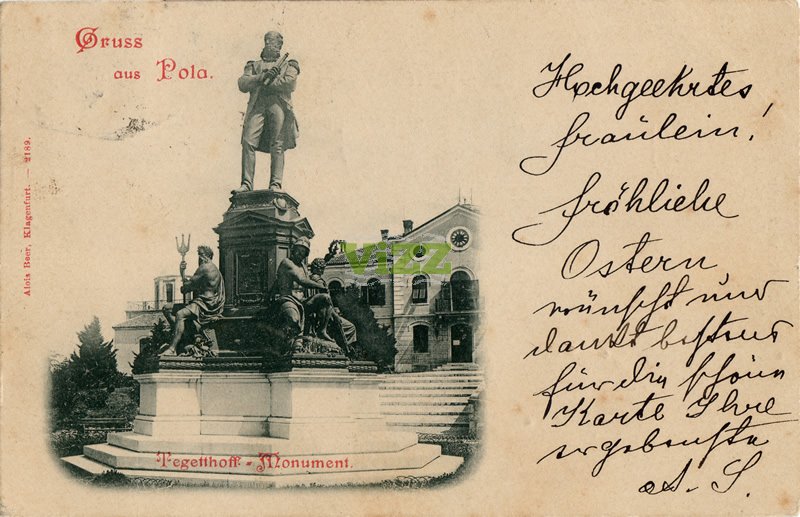 Gruss
aus Pola.
Alois Beer, Klagenfurt. — 2189.
VIZZ
Tegetthoff - Monument.
Hochgeehrtes
Fräulein!
Fröhliche
Ostern
wünscht und
dankt bestens
für die schöne
Karte Ihre
ergebenste
A. S.